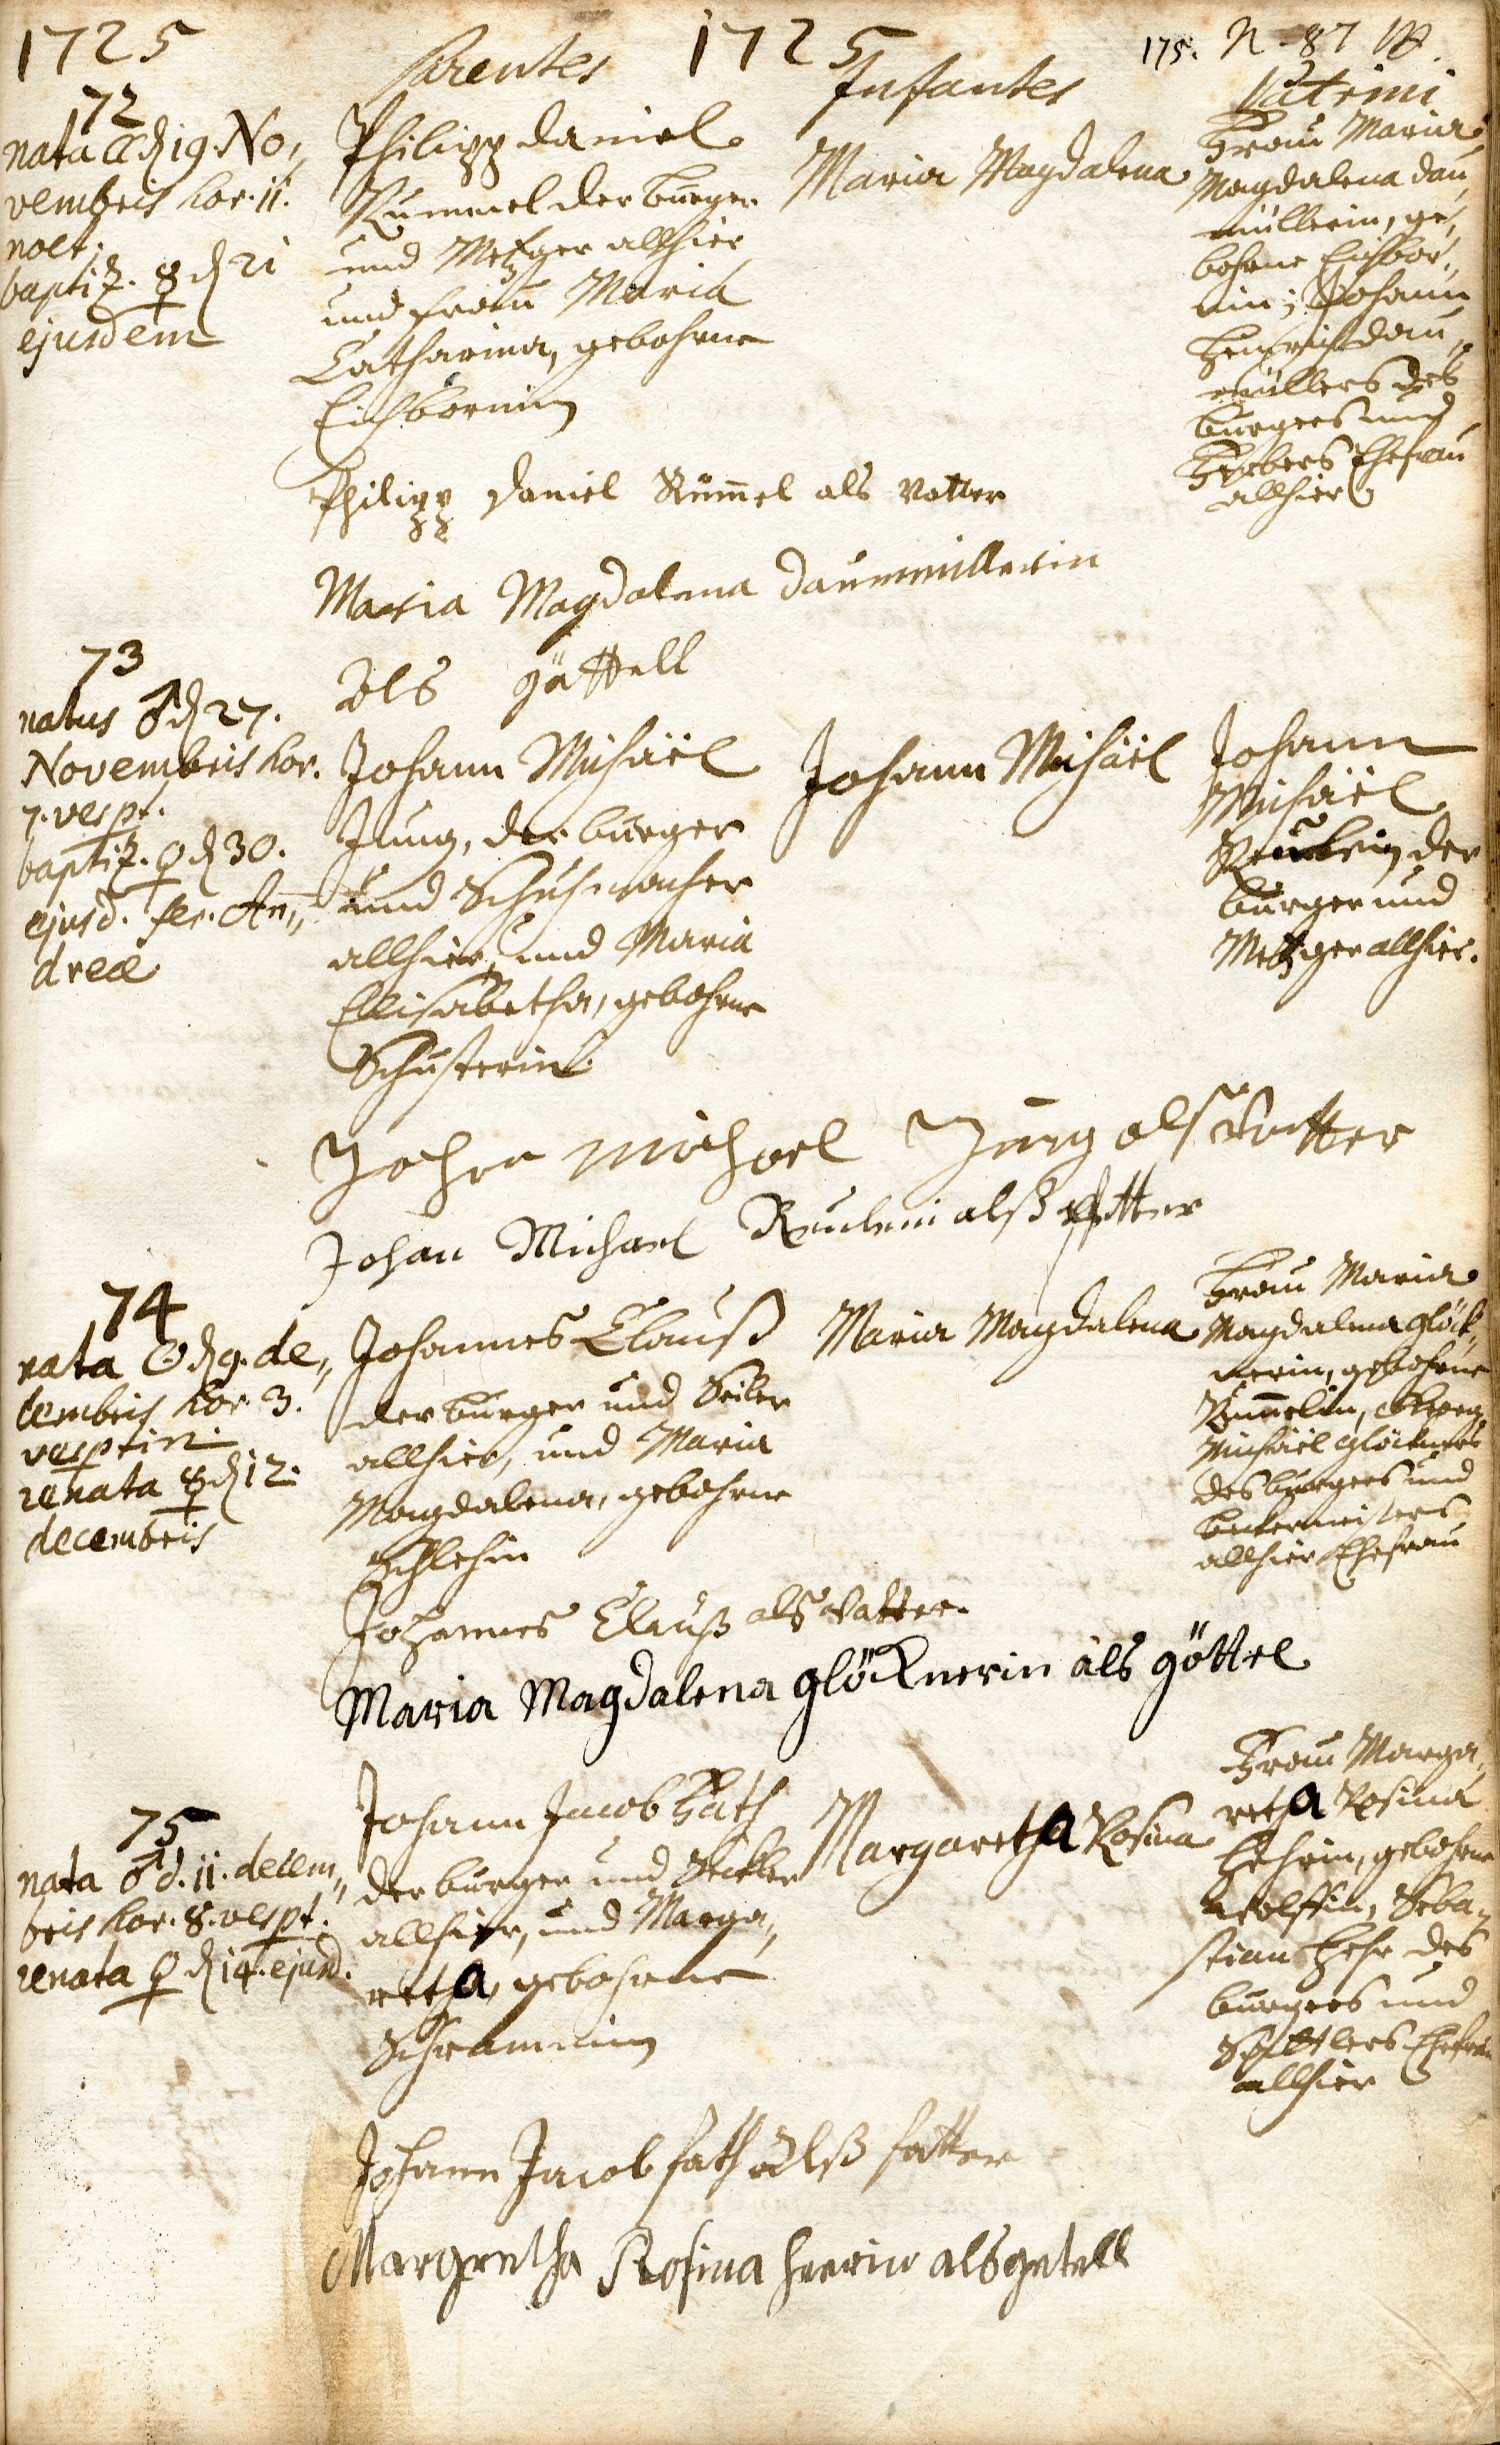 1725 Parentes 1725 Infantes 175. N. 87
Patrini
72
nata ☾ d 19. No„
vembris hor. 11.
noct.
baptiz. ☿ d 21
ejusdem
Philipp Daniel
Rummel der burger
und Metzger allhier
und frau Maria
Catharina, gebohrne
Eichbornin
Maria Magdalena
Frau Maria
Magdalena Dau„
müllerin, ge„
bohrne Eichbor„
nin; Johann
Henrich Dau„
müllers des
burgers und
Färbers Ehefrau
allhier
Philipp Daniel Rum̄el als Vatter
Maria Magdalena Daummillerin
Als göttell
73
natus ♂ d 27.
Novembris hor.
7. vespt.
baptiz. ♀ d 30.
ejusd. fer. An„
dreæ
Johann Michäel
Jung, der burger
und Schuhmacher
allhier, und Maria
Ellisabetha, gebohrne
Schusterin
Johann Michäel
Johann
Michäel
Reulein der
burger und
Metzger allhier.
Johan Michael Jung als Vatter
Johan Michael Reulein alß Pfetter
74
nata ☉ d 9. de„
cembris hor. 3.
vesptin.
renata ☿ d 12.
decembris
Johannes Clauß
der burger und Seiler
allhier, und Maria
Magdalena, gebohrne
Maria Magdalena
Frau Maria
Magdalena Glöck„
nerin, gebohrne
Rum̄elin,
Michäel Glöckners
des burgers und
beckermeisters
allhier Ehefrau
Johannes Clauß als Vatter
Maria Magdalena glöcknerin als göttel
75
nata ♂ d. 11. decem„
bris hor. 8. vespt.
renata ♀ d 14. ejusd.
Johann Jacob Fath
der burger und
allhier, und Marga„
retha, gebohrne
Schrammin
Margaretha Rosina
Frau Marga„
retha Rosina
gebohrne
Wolffin, Seba„
stian des
burgers und
Sattlers Ehefrau
allhier
Johann Jacob fath alß fatter
Margretha Rosina als getell